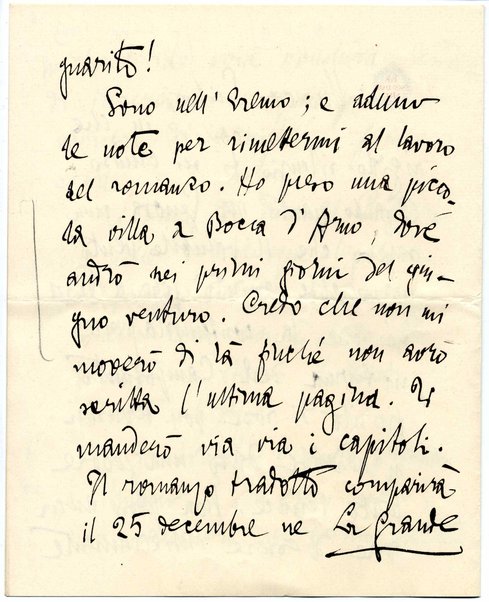 guarito!
Sono nell'Eremo; e aduno
le note per rimettermi al lavoro
del romanzo. Ho preso una picco-
la villa a Bocca d'Arno, dove
andrò nei primi giorni del giu-
gno venturo. Credo che non mi
moverò di là finché non avrò
scritta l'ultima pagina. Ti
manderò via via i capitoli.
Il romanzo tradotto comparirà
il 25 decembre ne La Grande